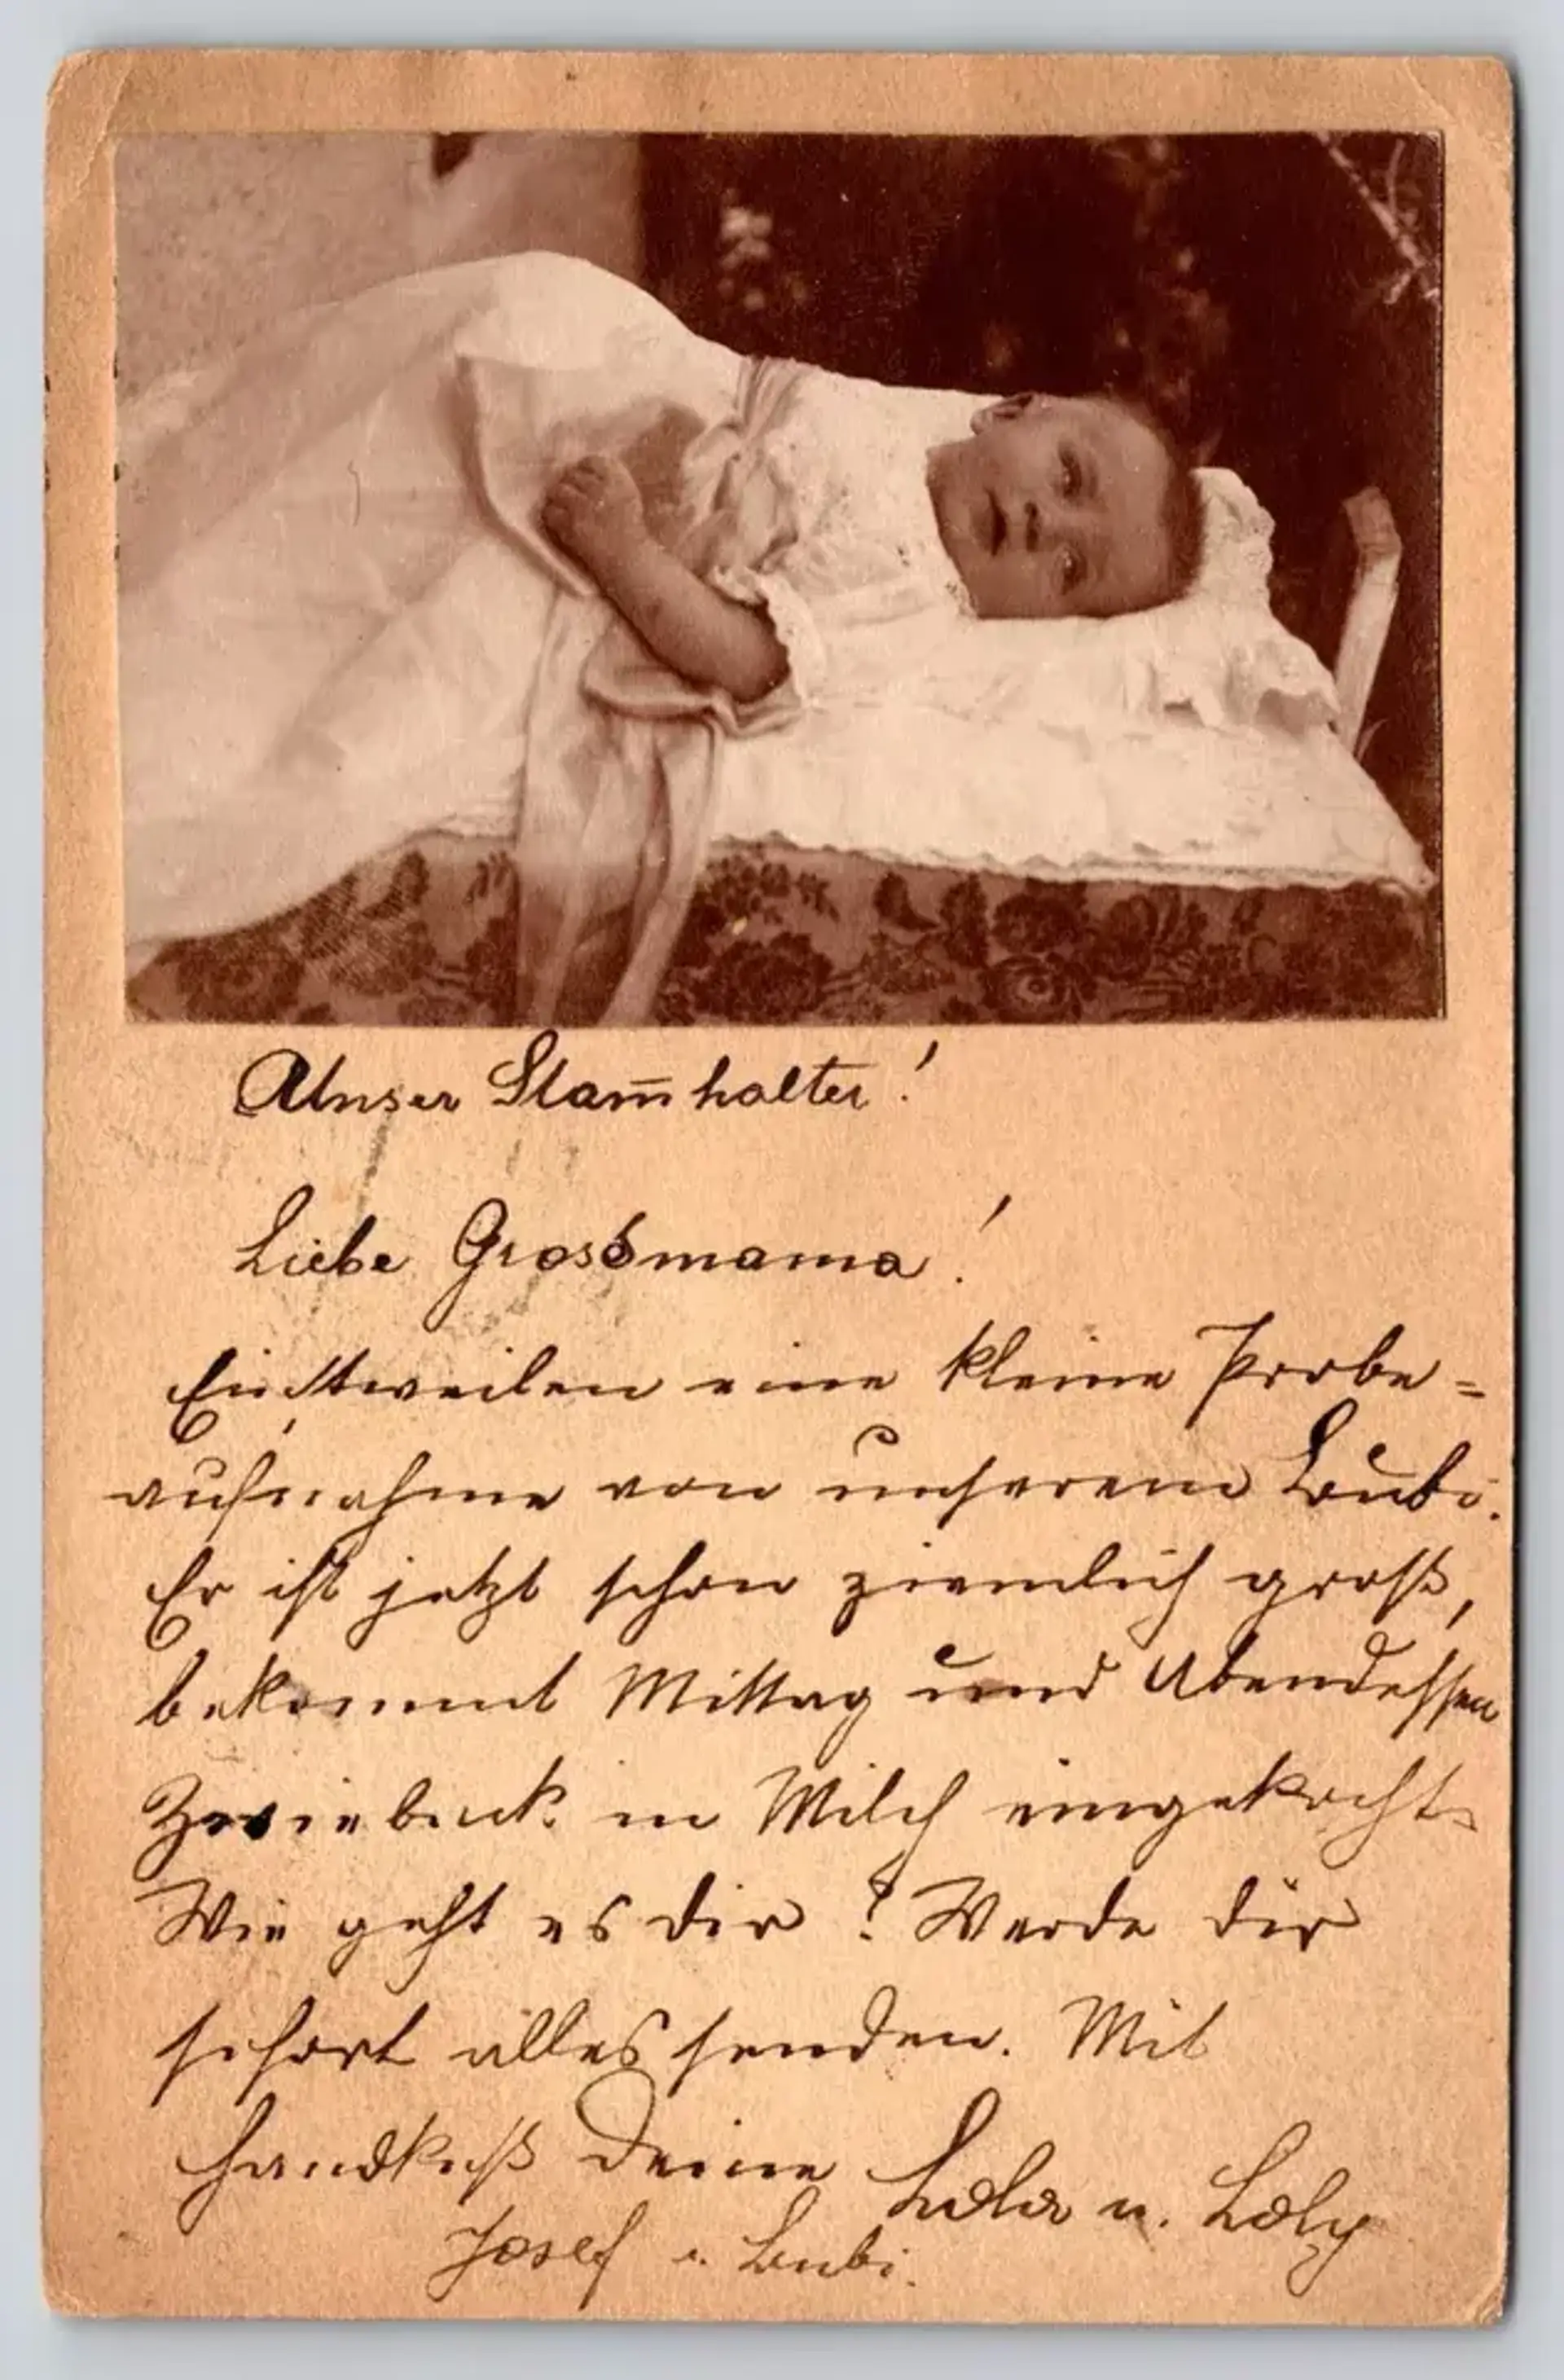 Unser Stam̅halter!
Liebe Grossmama!
Einstweilen eine kleine Probe=
aufnahme von unserem Bubi.
Er ist jetzt schon ziemlich groß,
bekommt Mittag und Abendessen
Zwieback in Milch eingekocht.
Wie geht es dir? Werde dir
sofort alles senden. Mit
Handkuß Deine u. Loly
Josef u. Bubi.